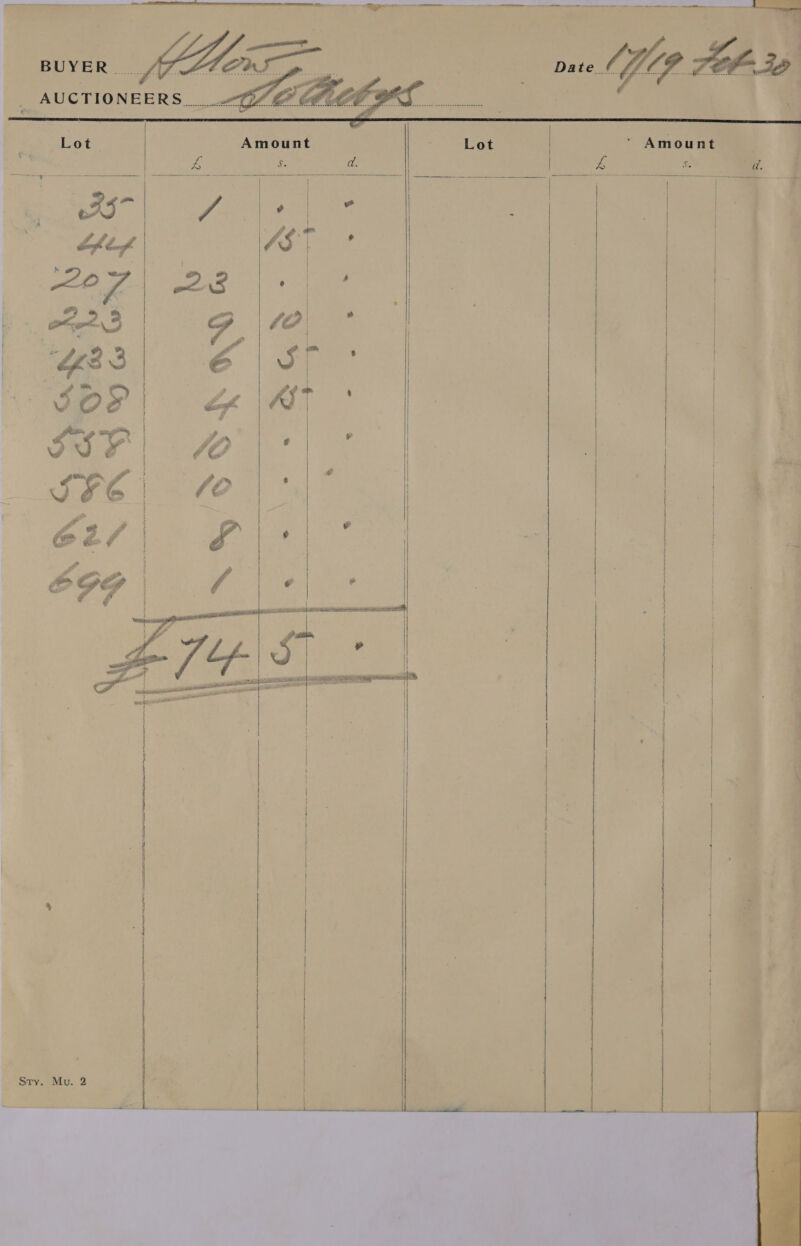 BUYER
Date 17/19 Feb 30
AUCTIONEERS Sothebys
Lot Amount Lot Amount
£ s. d. £ s. d.
35 1 . .
44 15 .
207 23 . .
223 9 10 .
433 6 5 .
508 4 15 .
558 10 . .
586 10 . .
621 8 . .
699 1 . .
£74 5 .
Sty. Mu. 2